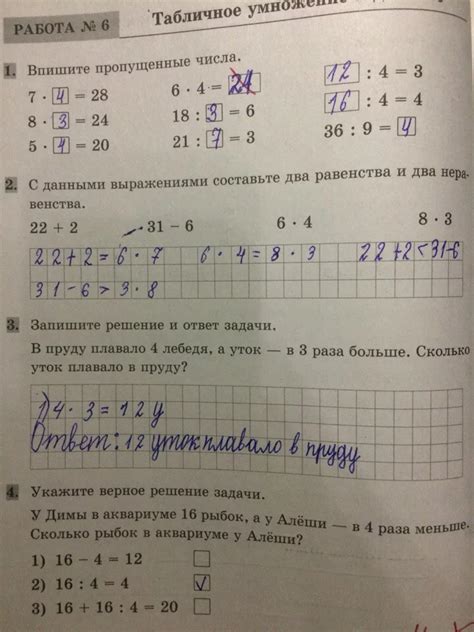 РАБОТА № 6
Табличное умножение
1. Впишите пропущенные числа.
7 · 4 = 28 6 · 4 = 24 12 : 4 = 3
8 · 3 = 24 18 : 3 = 6 16 : 4 = 4
5 · 4 = 20 21 : 7 = 3 36 : 9 = 4
2. С данными выражениями составьте два равенства и два нера-
венства.
22 + 2 31 – 6 6 · 4 8 · 3
22+2=6·7 6·4=8·3 22+2<31-6
31-6>3·8
3. Запишите решение и ответ задачи.
В пруду плавало 4 лебедя, а уток — в 3 раза больше. Сколько
уток плавало в пруду?
1) 4·3=12 у
Ответ: 12 уток плавало в пруду
4. Укажите верное решение задачи.
У Димы в аквариуме 16 рыбок, а у Алёши — в 4 раза меньше.
Сколько рыбок в аквариуме у Алёши?
1) 16 – 4 = 12
2) 16 : 4 = 4 ✓
3) 16 + 16 : 4 = 20